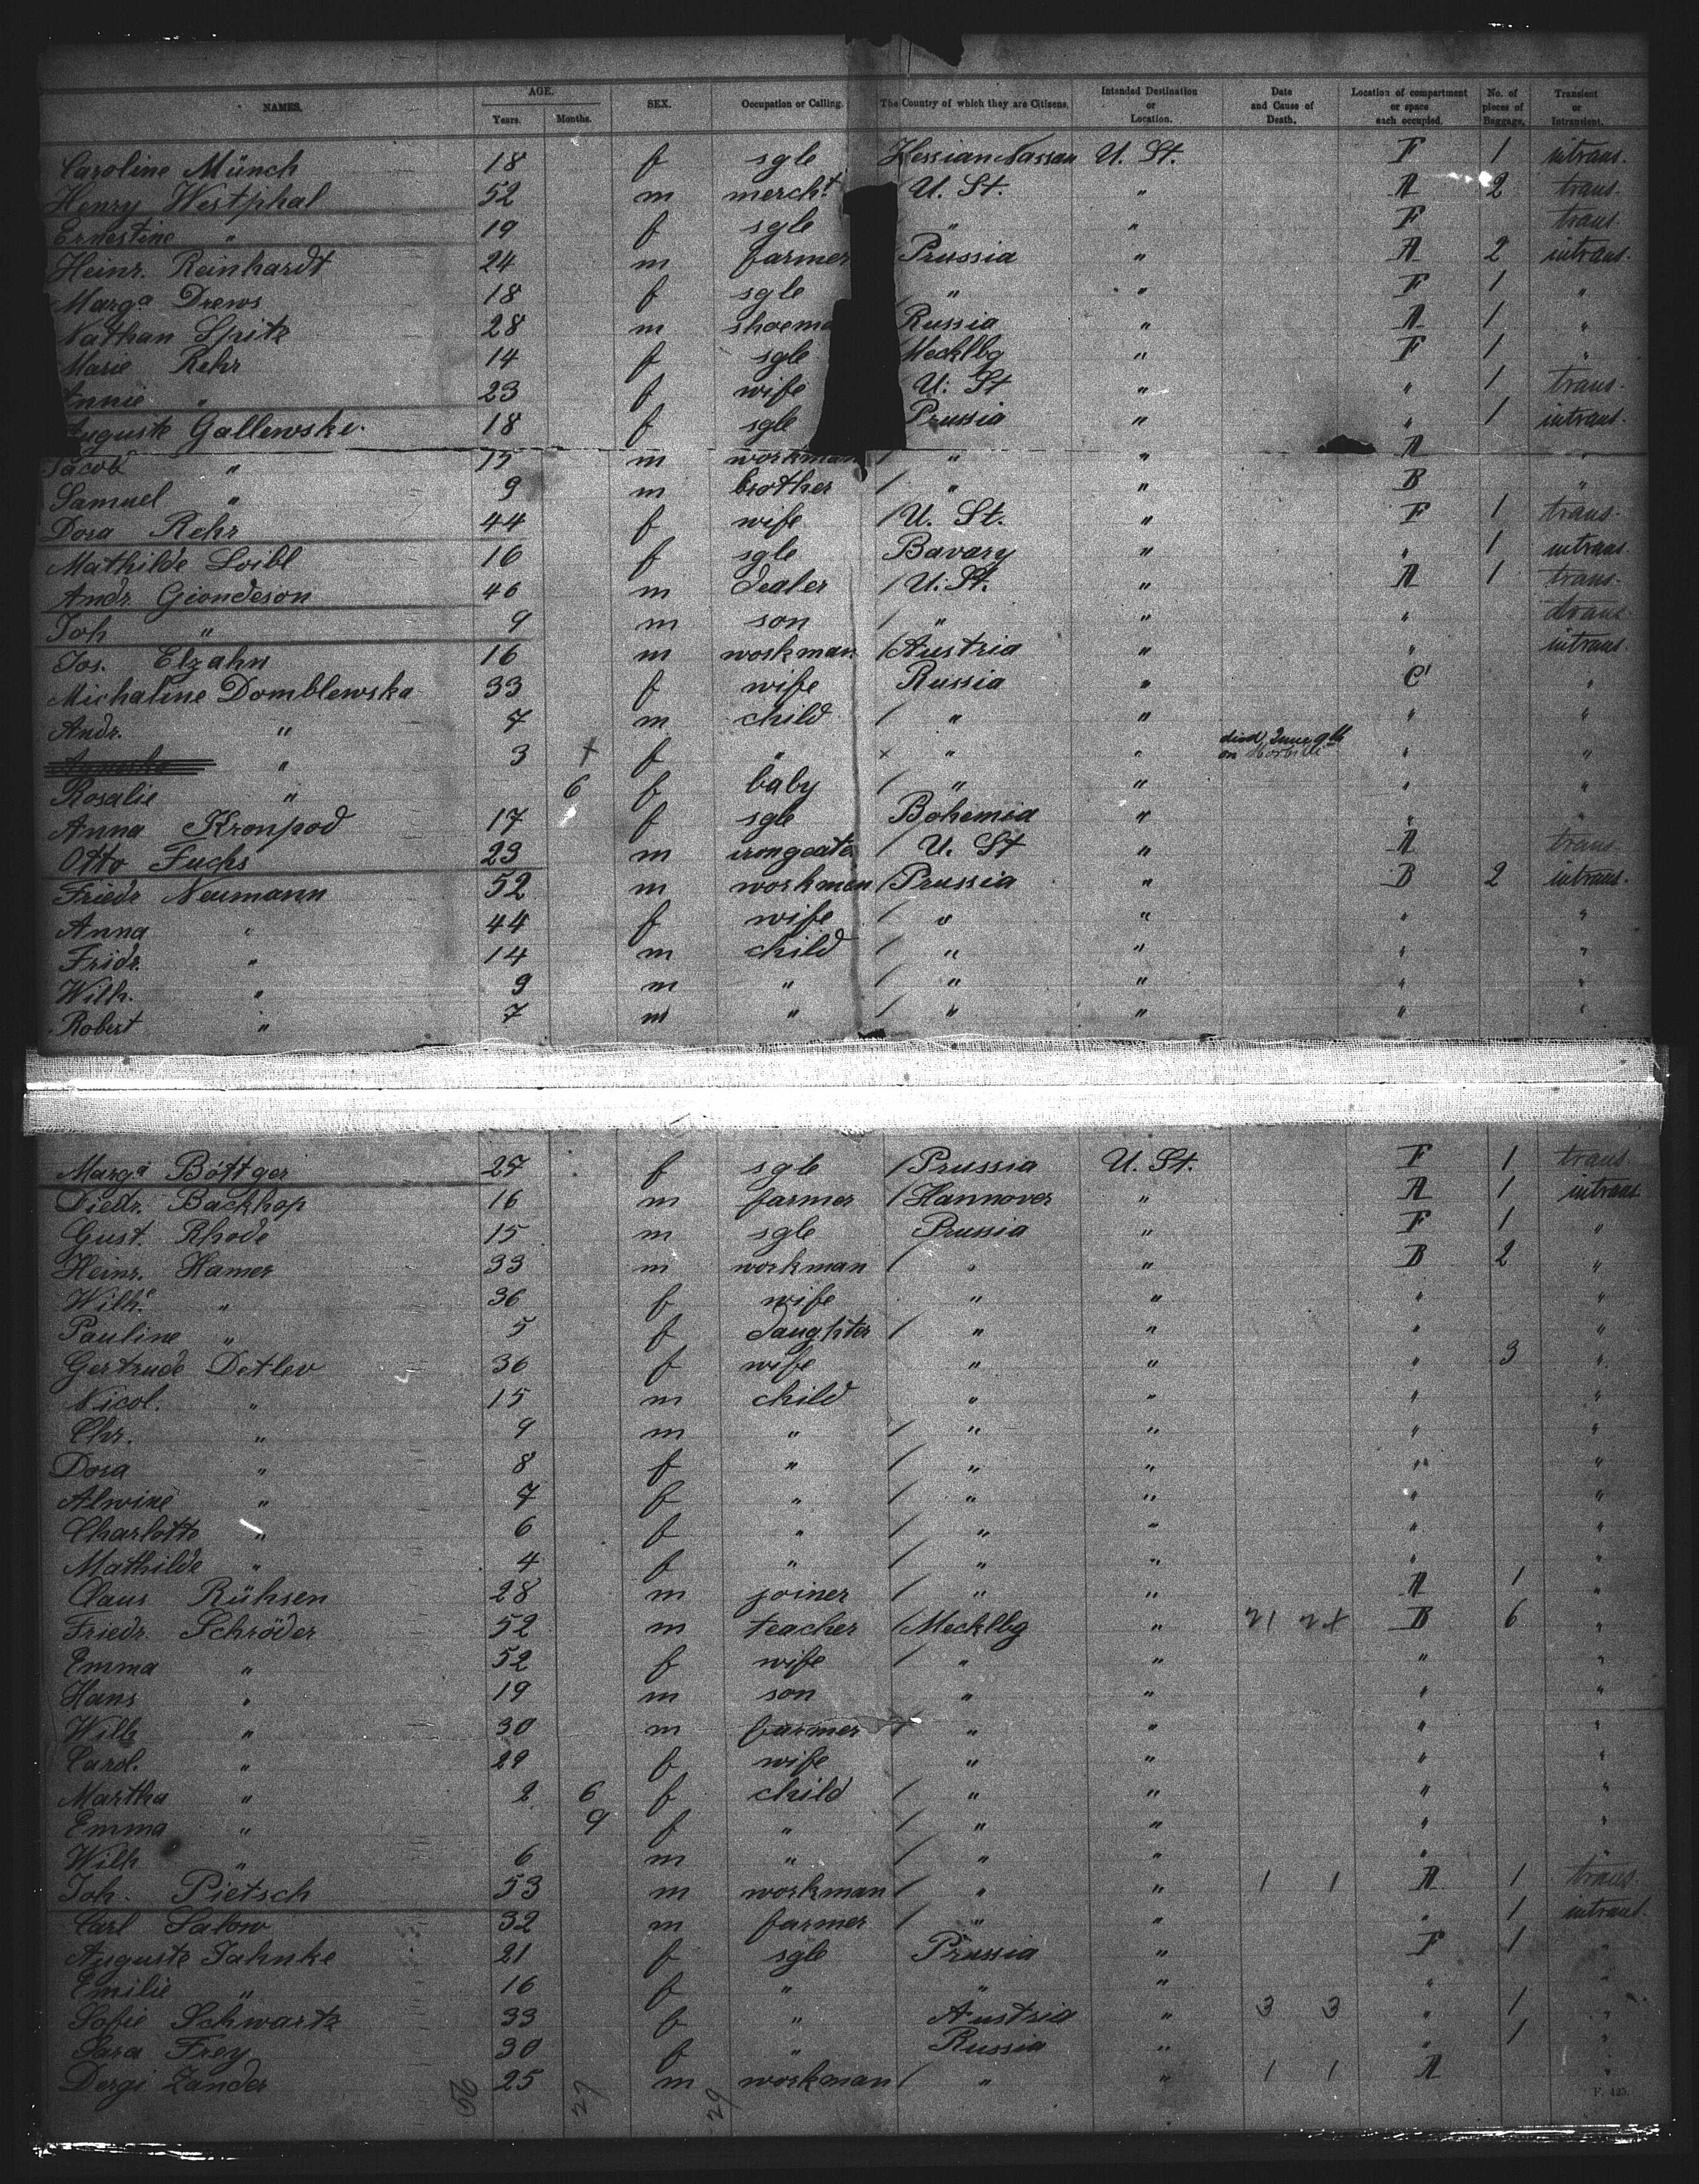 NAMES. AGE. Years. Months. SEX. Occupation or Calling. The Country of which they are Citizens. Intended Destination or Location. Date and Cause of Death. Location of compartment or space each occupied. No. of pieces of Baggage. Transient or Intransient.
Caroline Münch 18 f sgle Hessian Nassau U. St. F 1 intrans.
Henry Westphal 52 m merch.t U. St. " A 2 trans.
Ernestine " 19 f sgle " " F trans.
Heinr. Reinhardt 24 m farmer Prussia " A 2 intrans.
Marg.a Drews 18 f sgle " " F 1 "
Nathan Spitz 28 m shoema Russia " A 1 "
Marie Rehr 14 f sgle Mecklbg " F 1 "
Annie " 23 f wife U. St " " 1 trans.
Auguste Gallewski. 18 f sgle Prussia " " 1 intrans.
Jacob " 15 m workman / " " A "
Samuel " 9 m brother / " " B "
Dora Rehr 44 f wife / U. St. " F 1 trans.
Mathilde Loibl 16 f sgle Bavary " " 1 intrans.
Andr. Giondeson 46 m dealer / U. St. " A 1 trans.
Joh " 9 m son / " " " trans.
Jos. Elzahn 16 m workman / Austria " " intrans.
Michaline Domblewska 33 f wife Russia " C "
Andr. " 7 m child / " " " "
" 3 + f " x " " died June 9th on Morbilli " "
Rosalie " 6 f baby / " " " "
Anna Kronpod 17 f sgle Bohemia " " "
Otto Fuchs 23 m / U. St " A trans.
Friedr Neumann 52 m workman / Prussia " B 2 intrans.
Anna " 44 f wife / " " " "
Fridr. " 14 m child / " " " "
Wilh. " 9 m " / " " " "
Robert " 7 m " / " " " "
Marg.a Böttger 27 f sgle / Prussia U. St. F 1 trans
Diedr. Backhop 16 m farmer / Hannover " A 1 intrans.
Gust. Rhode 15 m sgle Prussia " F 1 "
Heinr. Hamer 33 m workman / " " B 2 "
Wilh.e " 36 f wife " " " "
Pauline " 5 f daughter / " " " "
Gertrude Detlev 36 f wife " " " 3 "
Nicol. " 15 m child " " " "
Chr. " 9 m " / " " " "
Dora " 8 f " / " " " "
Alwine " 7 f " / " " " "
Charlotte " 6 f " / " " " "
Mathilde " 4 f " / " " " "
Claus Rühsen 28 m joiner / " " A 1 "
Friedr. Schröder 52 m teacher / Mecklbg " 21 24 B 6 "
Emma " 52 f wife / " " " "
Hans " 19 m son " " " "
Wilh " 30 m farmer / " " " "
Carol. " 29 f wife " " " "
Martha " 2 6 f child / " " " "
Emma " 9 f " / " " " "
Wilh " 6 m " / " " " "
Joh. Pietsch 53 m workman / " " 1 1 A 1 trans.
Carl Salow 32 m farmer / " " " 1 intrans.
Auguste Jahnke 21 f sgle Prussia " F 1 "
Emilie " 16 f " " " " "
Sofie Schwartz 33 f " Austria " 3 3 " 1 "
Sara Frey 30 f " Russia " " 1 "
Dergi Zander 25 m workman / " " 1 1 A "
56 27 29
F. 425.